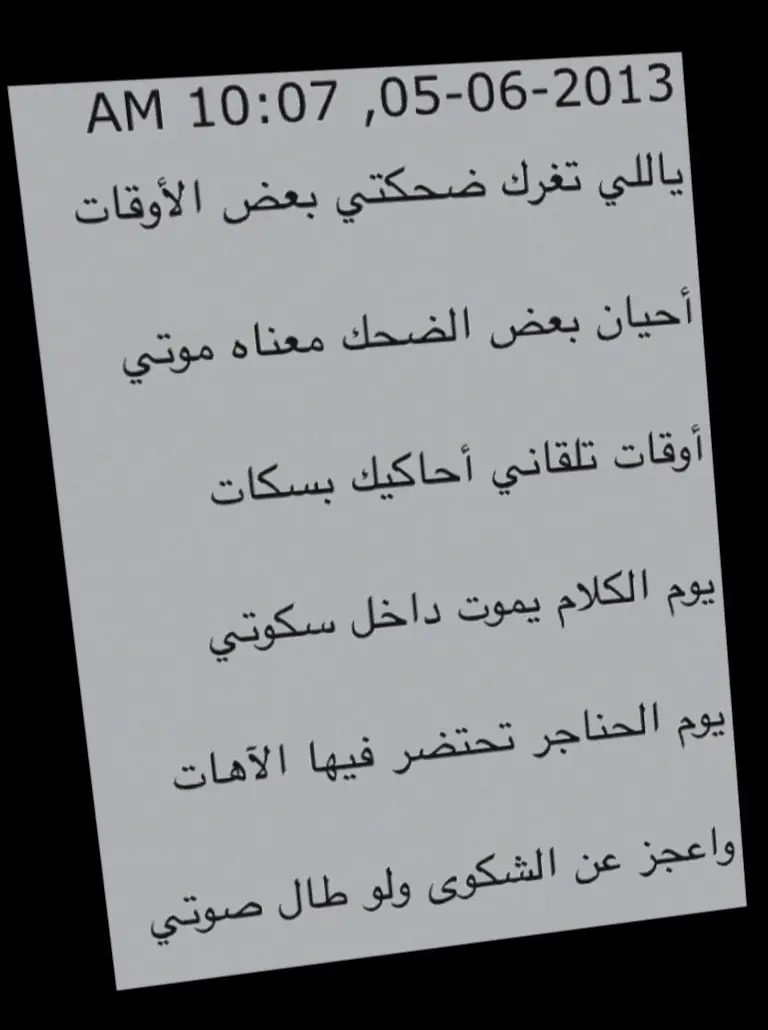 05-06-2013, 10:07 AM
ياللي تغرك ضحكتي بعض الأوقات
أحيان بعض الضحك معناه موتي
أوقات تلقاني أحاكيك بسكات
يوم الكلام يموت داخل سكوتي
يوم الحناجر تحتضر فيها الآهات
واعجز عن الشكوى ولو طال صوتي